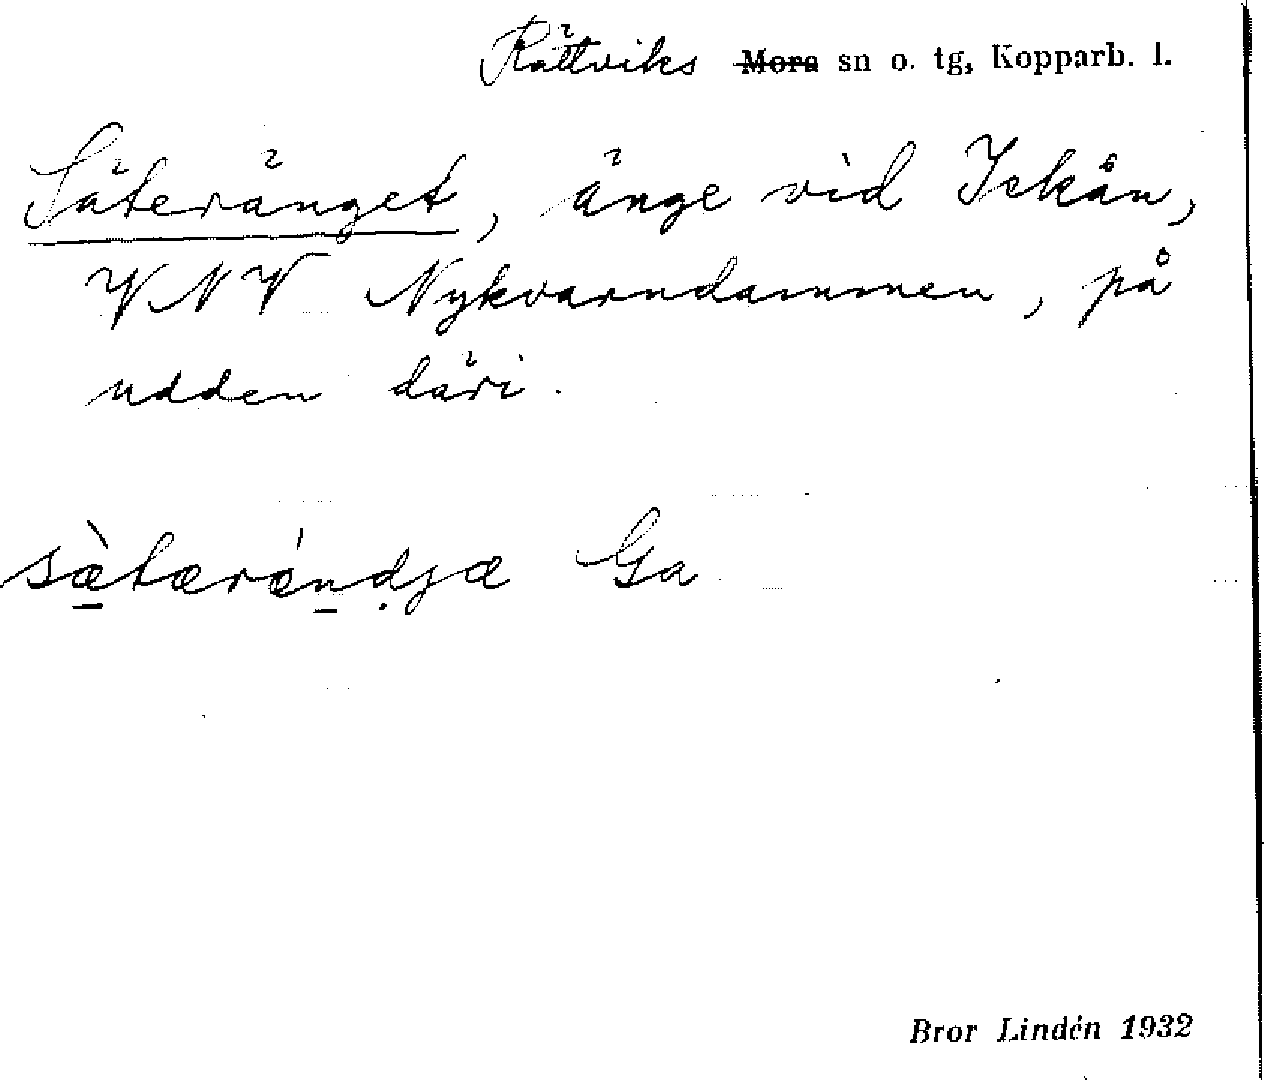 Rättviks Mora sn o. tg, Kopparb. l.
Säteränget, änge vid Ickån,
VNV Nykvarndammen, på
udden däri.
sæ̀tærǽndjæ Ga
Bror Lindén 1932